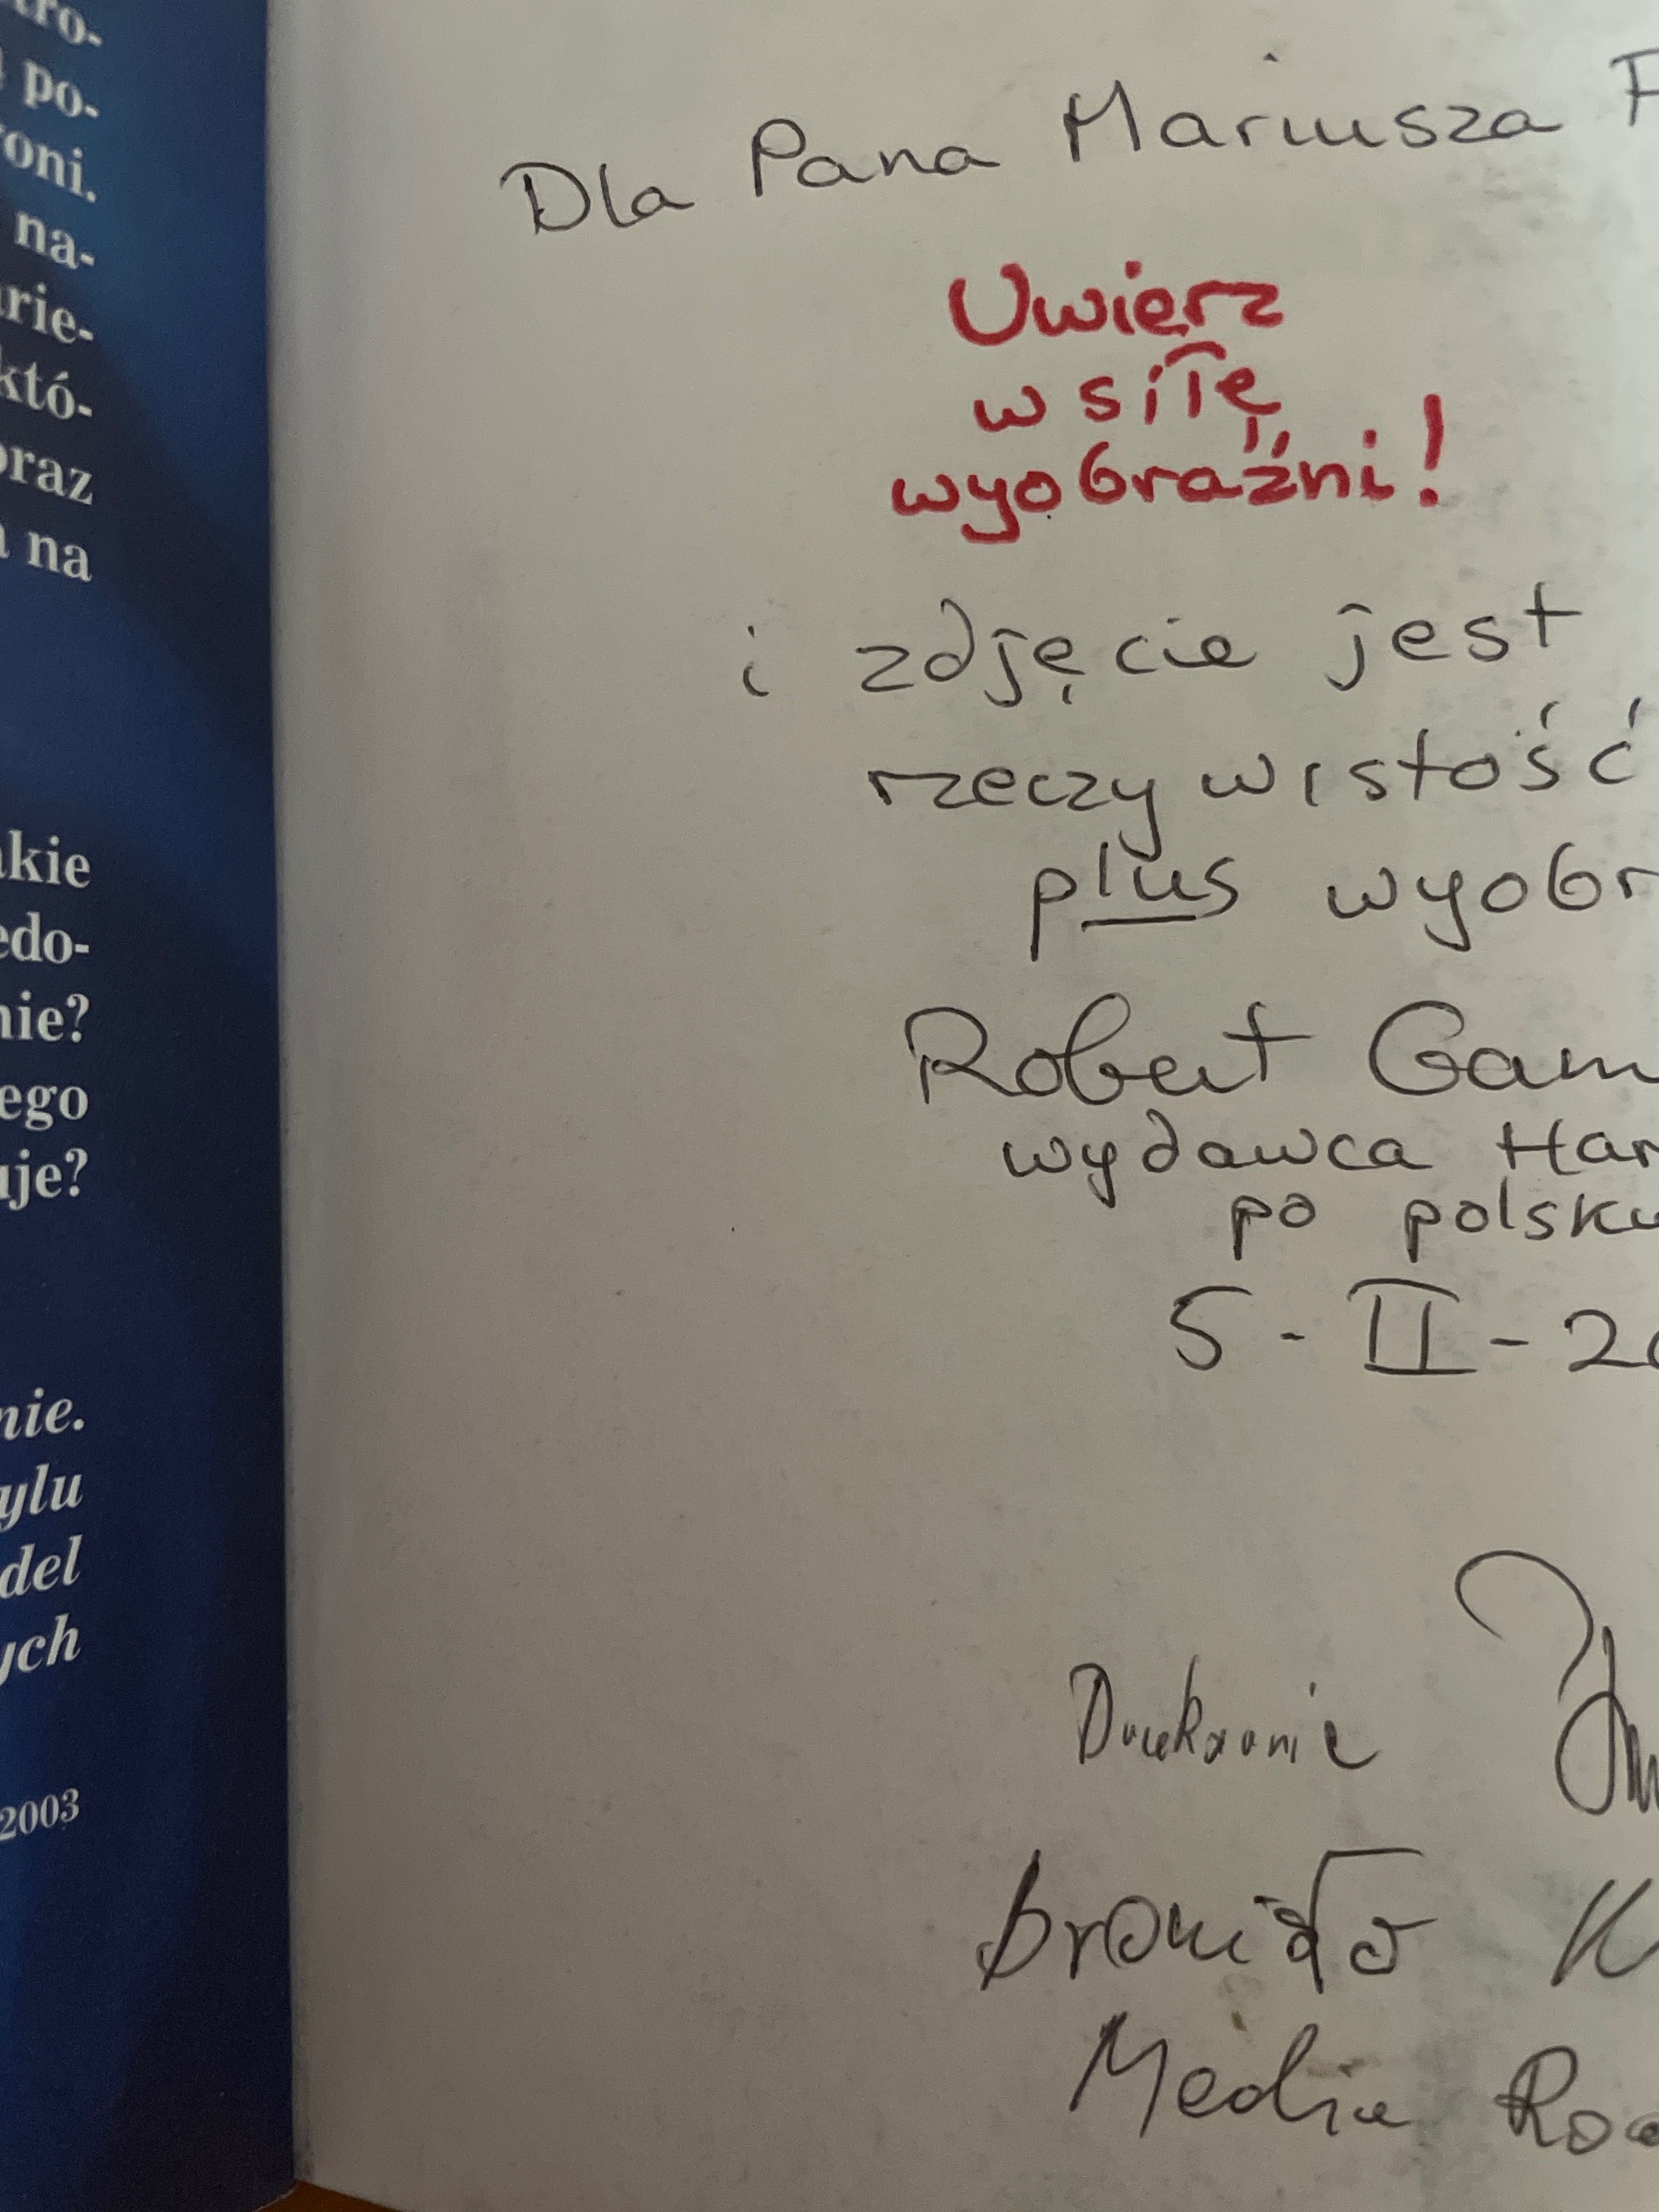 tro-
po-
roni.
na-
arie-
któ-
oraz
na
akie
edo-
nie?
ego
uje?
nie.
ylu
del
ych
2003
Dla Pana Mariusza F
Uwierz
w siłę
wyobraźni!
i zdjęcie jest
rzeczywistość
plus wyobr
Robert Gam
wydawca Har
po polsku
5-II-20
K
Media Ro